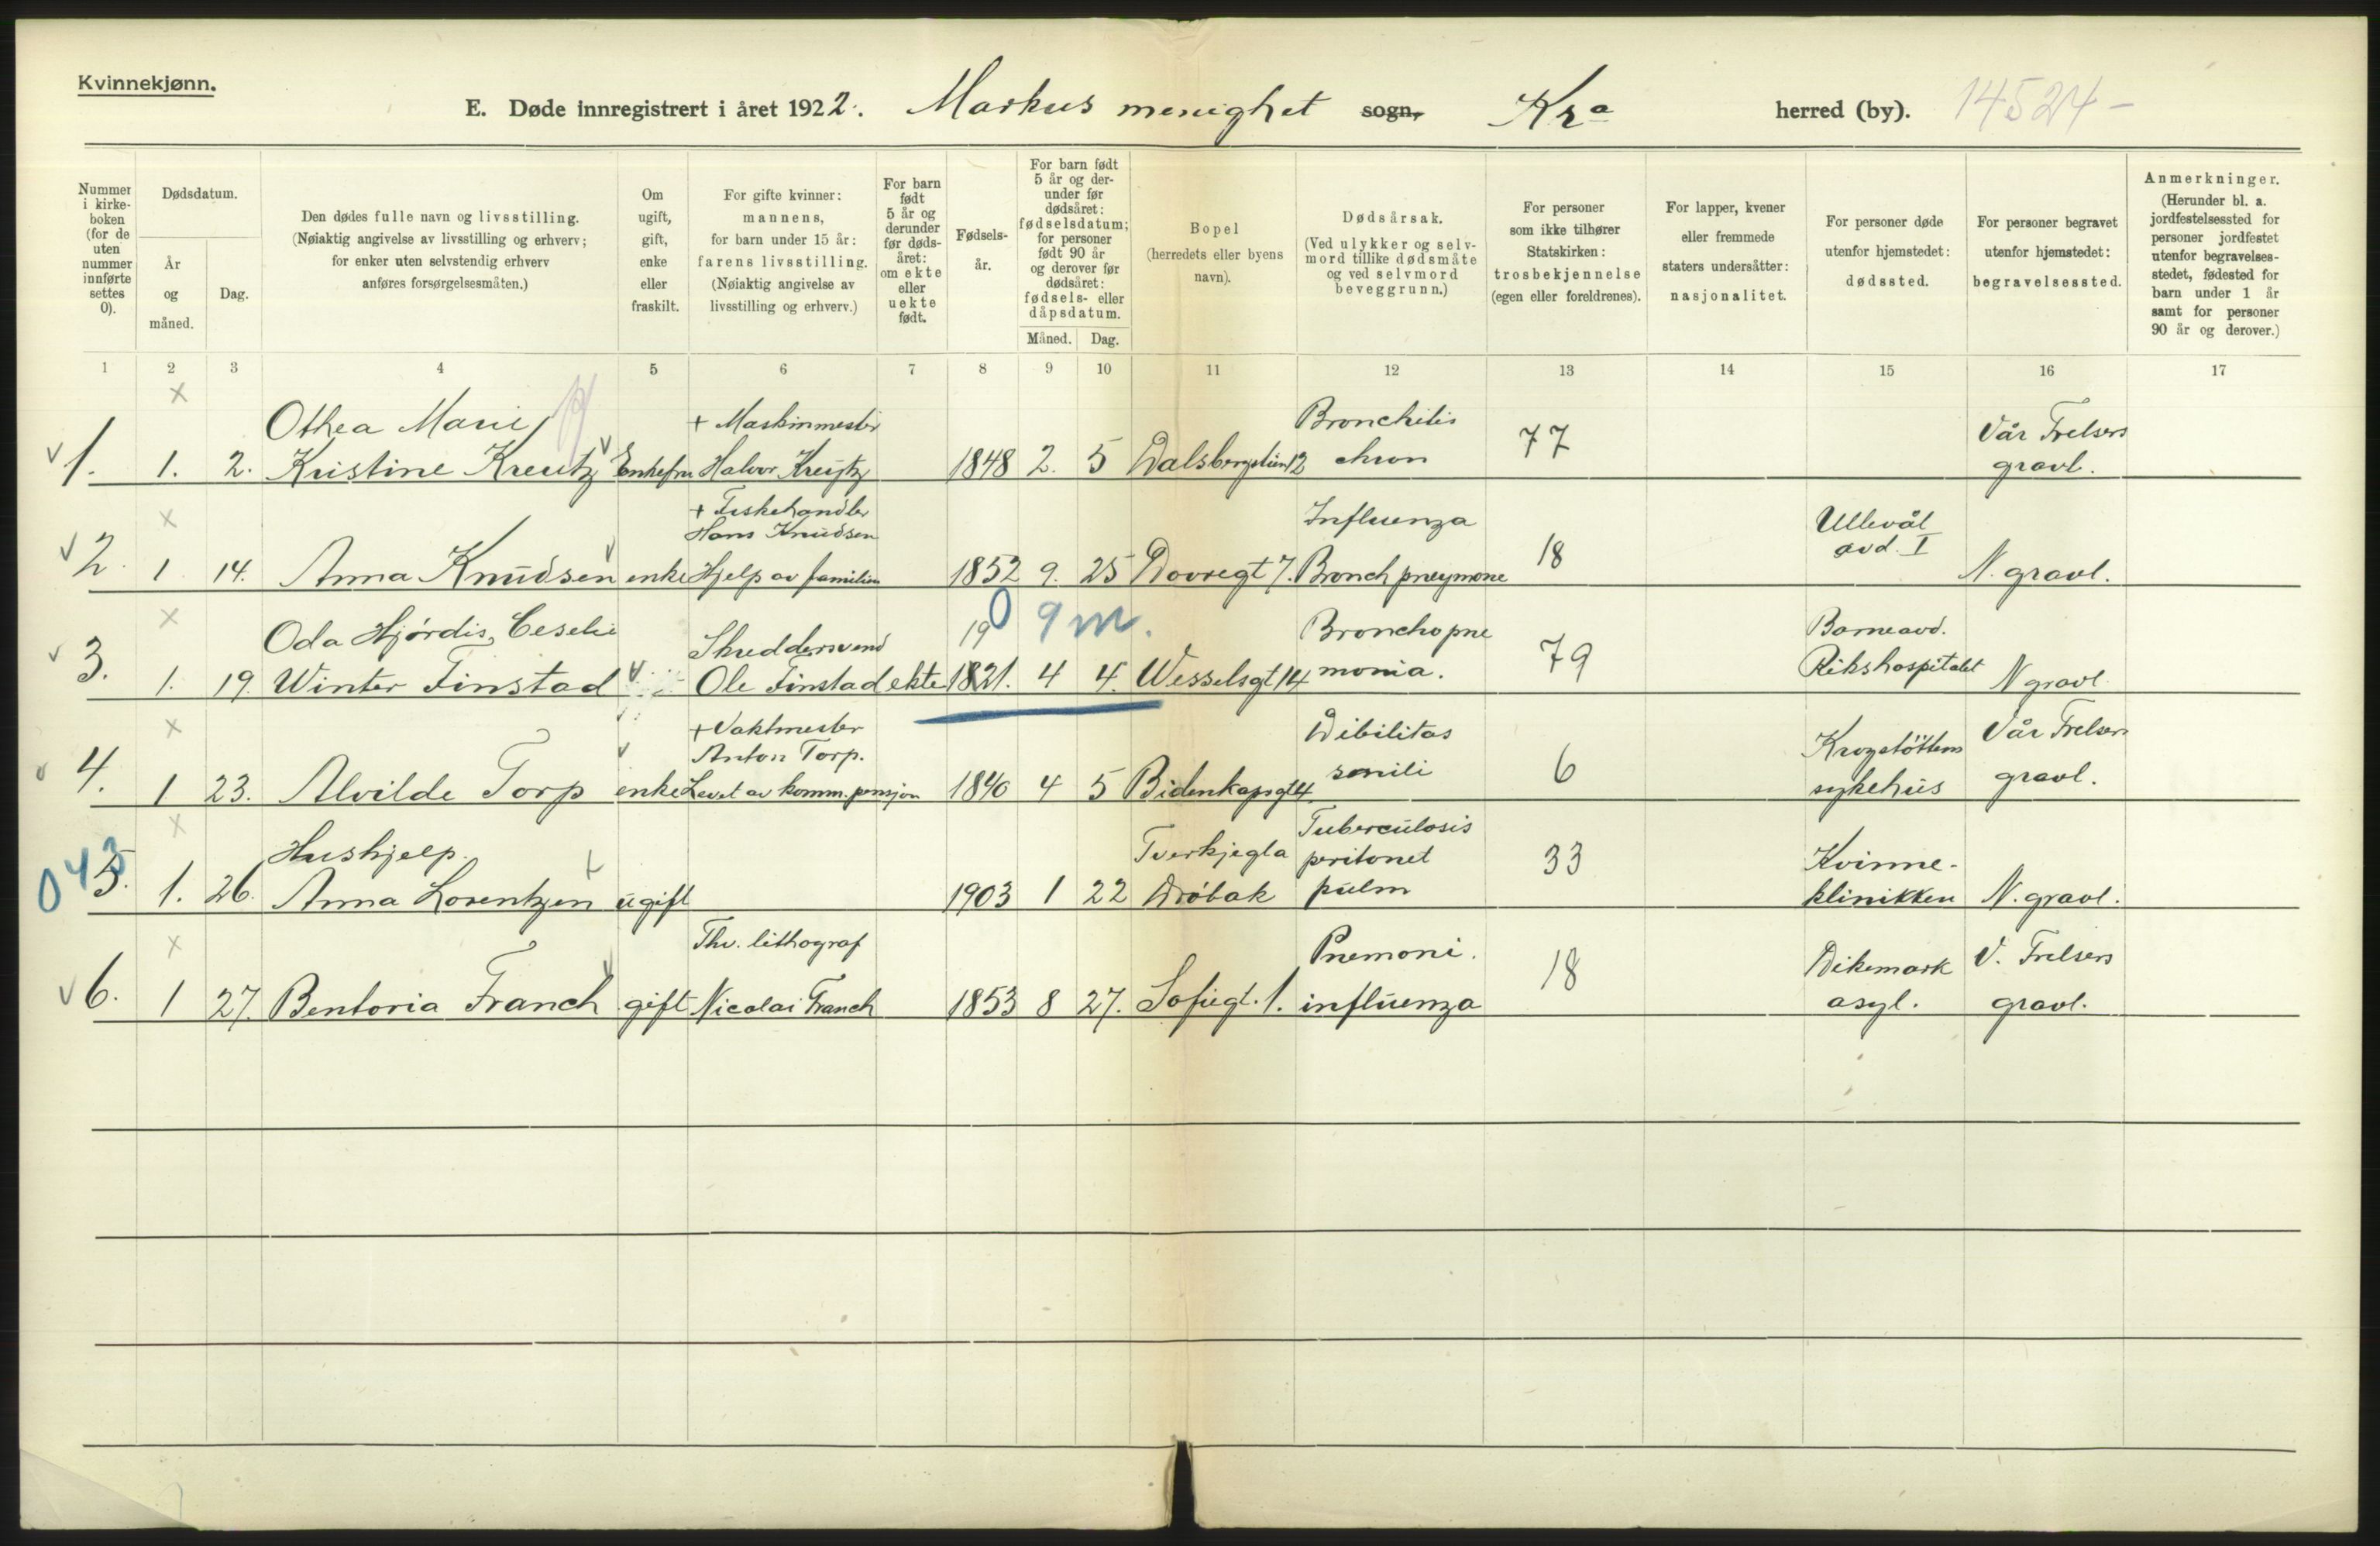 Kvinnekjønn.
E. Døde innregistrert i året 1922. Markus menighet sogn, Kra herred (by). 14524-
Nummer i kirke-boken (for de uten nummer innførte settes 0).
Dødsdatum.
År og måned.
Dag.
Den dødes fulle navn og livsstilling.
(Nøiaktig angivelse av livsstilling og erhverv;
for enker uten selvstendig erhverv
anføres forsørgelsesmåten.)
Om
ugift,
gift,
enke
eller
fraskilt.
For gifte kvinner:
mannens,
for barn under 15 år:
farens livsstilling.
(Nøiaktig angivelse av
livsstilling og erhverv.)
For barn
født
5 år og
derunder
før døds-
året:
om ekte
eller
uekte
født.
Fødsels-
år.
For barn født
5 år og der-
under før
dødsåret:
fødselsdatum;
for personer
født 90 år
og derover før
dødsåret:
fødsels- eller
dåpsdatum.
Måned. Dag.
Bopel
(herredets eller byens
navn).
Dødsårsak.
(Ved ulykker og selv-
mord tillike dødsmåte
og ved selvmord
beveggrunn.)
For personer
som ikke tilhører
Statskirken:
trosbekjennelse
(egen eller foreldrenes).
For lapper, kvener
eller fremmede
staters undersåtter:
nasjonalitet.
For personer døde
utenfor hjemstedet:
dødssted.
For personer begravet
utenfor hjemstedet:
begravelsessted.
Anmerkninger.
(Herunder bl. a.
jordfestelsessted for
personer jordfestet
utenfor begravelses-
stedet, fødested for
barn under 1 år
samt for personer
90 år og derover.)
1 2 3 4 5 6 7 8 9 10 11 12 13 14 15 16 17
x
Othea Marie + Maskinmester Bronchitis 77 Vår Frelsers
v 1. 1. 2. Kristine Kreutz v Enkefru Halvor Kreutz 1848 2. 5 Dalsbergstien 12 chron gravl.
x + Fiskehandler Influenza Ullevål
Hans Knudsen 18 avd. I
v 2. 1 14. Anna Knudsen v enke Hjelp av familien 1852 9. 25 Dovregt 7. Bronch pneymone N. gravl.
x Oda Hjørdis, Ceselie Skreddersvend 19 0 9 m. Bronchopne 79 Barneavd.
v 3. 1. 19. Winter Finstad v Ole Finstad ekte 1821. 4 4. Wesselsgt 14 monia. Rikshospitalet N gravl.
x + Vaktmester Dibilitas Krogstøttens Vår Frelsers
v Anton Torp.
v 4. 1 23. Alvilde Torp enke Levet av komm. pensjon 1840 4 5 Bidenkapsgt 4. senili 6 sykehus gravl.
x Tuberculosis
Hushjelp. Tverkjegla peritonet 33 Kvinne-
043 5. 1. 26. Anna Lorentzen ugift 1903 1 22 Drøbak pulm klinikken N. gravl.
x Thv. lithograf Pnemoni. 18 Dikemark V. Frelsers
v 6. 1 27. Bentoria Franck v gift Nicolai Franck 1853 8 27. Sofiegt. 1. influenza asyl. gravl.